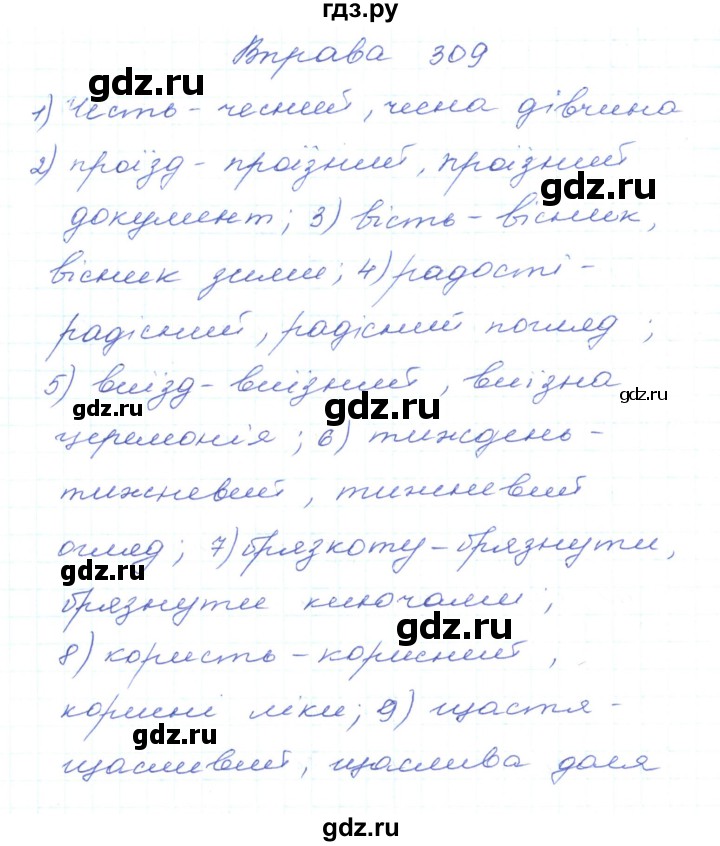 гдз.ру
Вправа 309
gdz.ru
gdz.ru
1) Честь - чесний, чесна дівчина
2) проїзд - проїзний, проїзний
gdz.ru
документ; 3) вість - вісник,
вісник зими; 4) радості -
радісний, радісний погляд;
5) виїзд - виїзний, виїзна
gdz.ru
gdz.ru
gdz.ru
церемонія; 6) тиждень -
тижневий, тижневий
огляд; 7) брязкоту - брязнути,
gdz.ru
брязнути ключами;
gdz.ru
8) користь - корисний,
корисні ліки; 9) щастя -
gdz.ru
щасливий, щаслива доля
gdz.ru